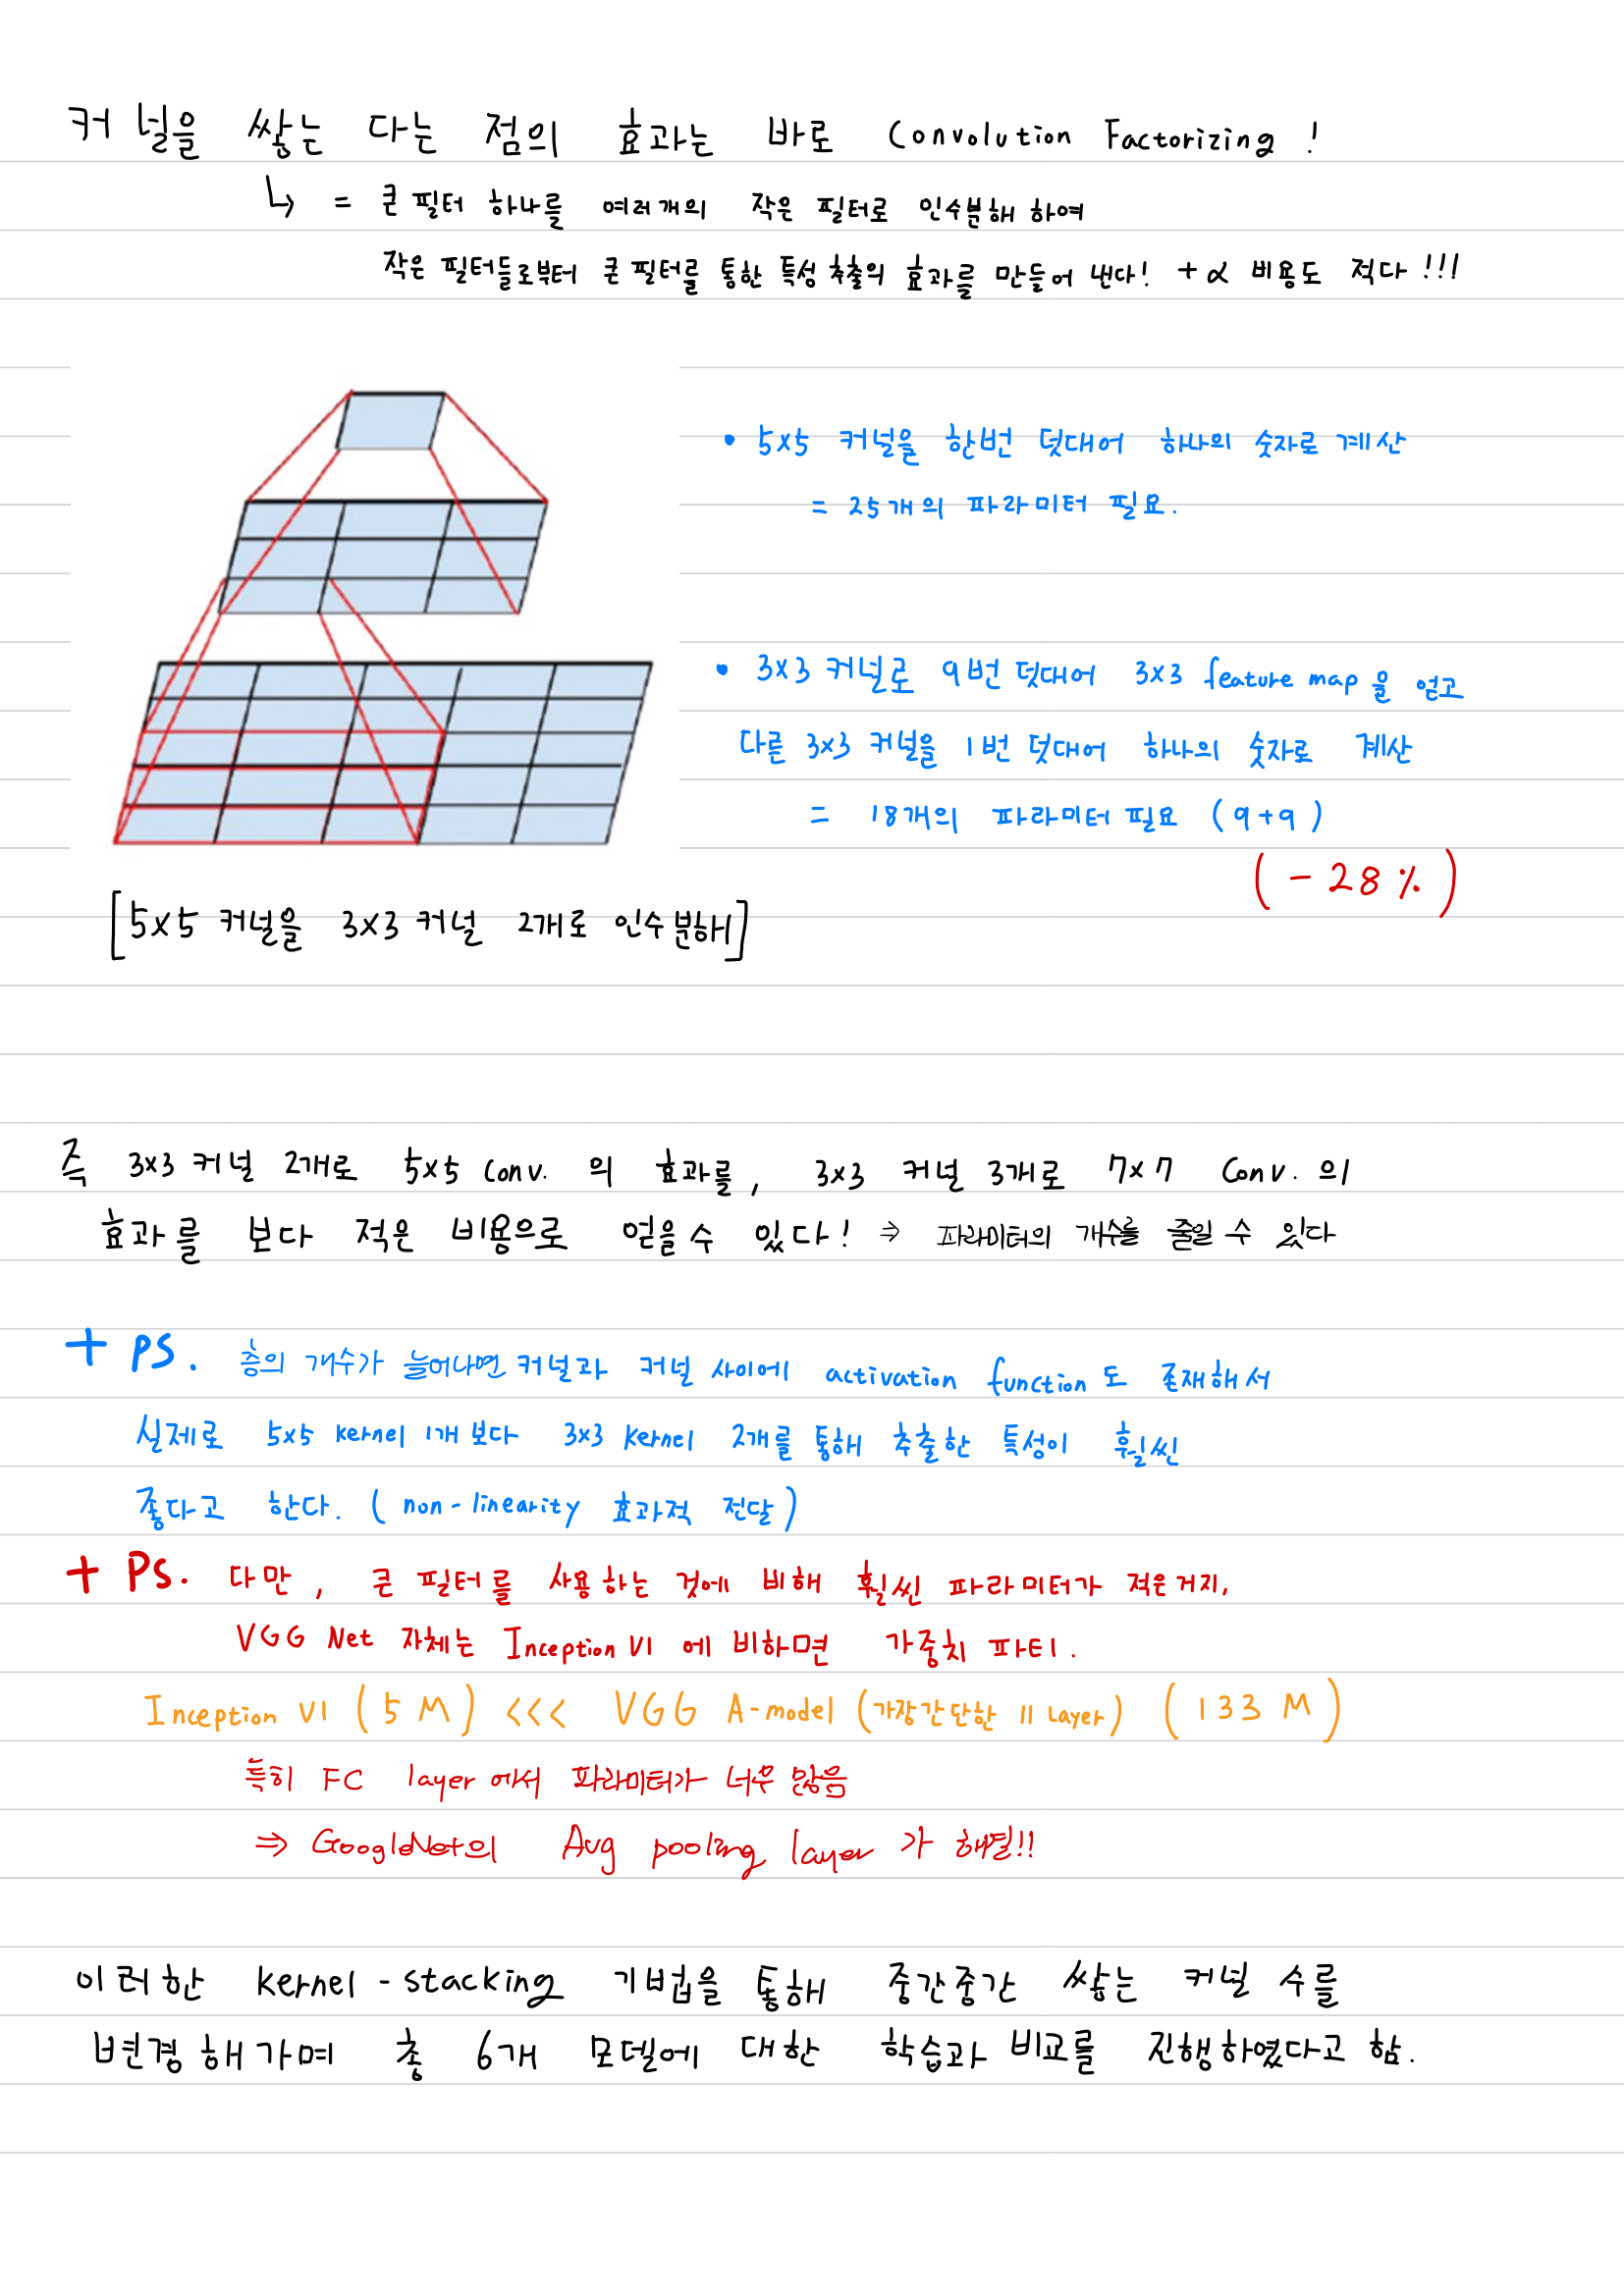 커널을 쌓는 다는 점의 효과는 바로 Convolution Factorizing !
↳ = 큰 필터 하나를 여러개의 작은 필터로 인수분해 하여
작은 필터들로부터 큰 필터를 통한 특성 추출의 효과를 만들어 낸다! + α 비용도 적다 !!!
• 5x5 커널을 한번 덧대어 하나의 숫자로 계산
= 25개의 파라미터 필요.
• 3x3 커널로 9번 덧대어 3x3 feature map을 얻고
다른 3x3 커널을 1번 덧대어 하나의 숫자로 계산
= 18개의 파라미터 필요 (9+9)
(-28%)
[5x5 커널을 3x3 커널 2개로 인수분해]
즉 3x3 커널 2개로 5x5 Conv. 의 효과를, 3x3 커널 3개로 7x7 Conv. 의
효과를 보다 적은 비용으로 얻을 수 있다! ⇒ 파라미터의 개수를 줄일 수 있다
+ PS. 층의 개수가 늘어나면 커널과 커널 사이에 activation function도 존재해서
실제로 5x5 kernel 1개 보다 3x3 kernel 2개를 통해 추출한 특성이 훨씬
좋다고 한다. (non-linearity 효과적 전달)
+ PS. 다만, 큰 필터를 사용하는 것에 비해 훨씬 파라미터가 적은거지,
VGG Net 자체는 Inception V1 에 비하면 가중치 파티.
Inception V1 (5M) <<< VGG A-model (가장간단한 11 Layer) (133M)
특히 FC layer에서 파라미터가 너무 많음
⇒ GoogleNet의 Avg pooling layer가 해결!!
이러한 kernel-stacking 기법을 통해 중간중간 쌓는 커널 수를
변경해가며 총 6개 모델에 대한 학습과 비교를 진행하였다고 함.